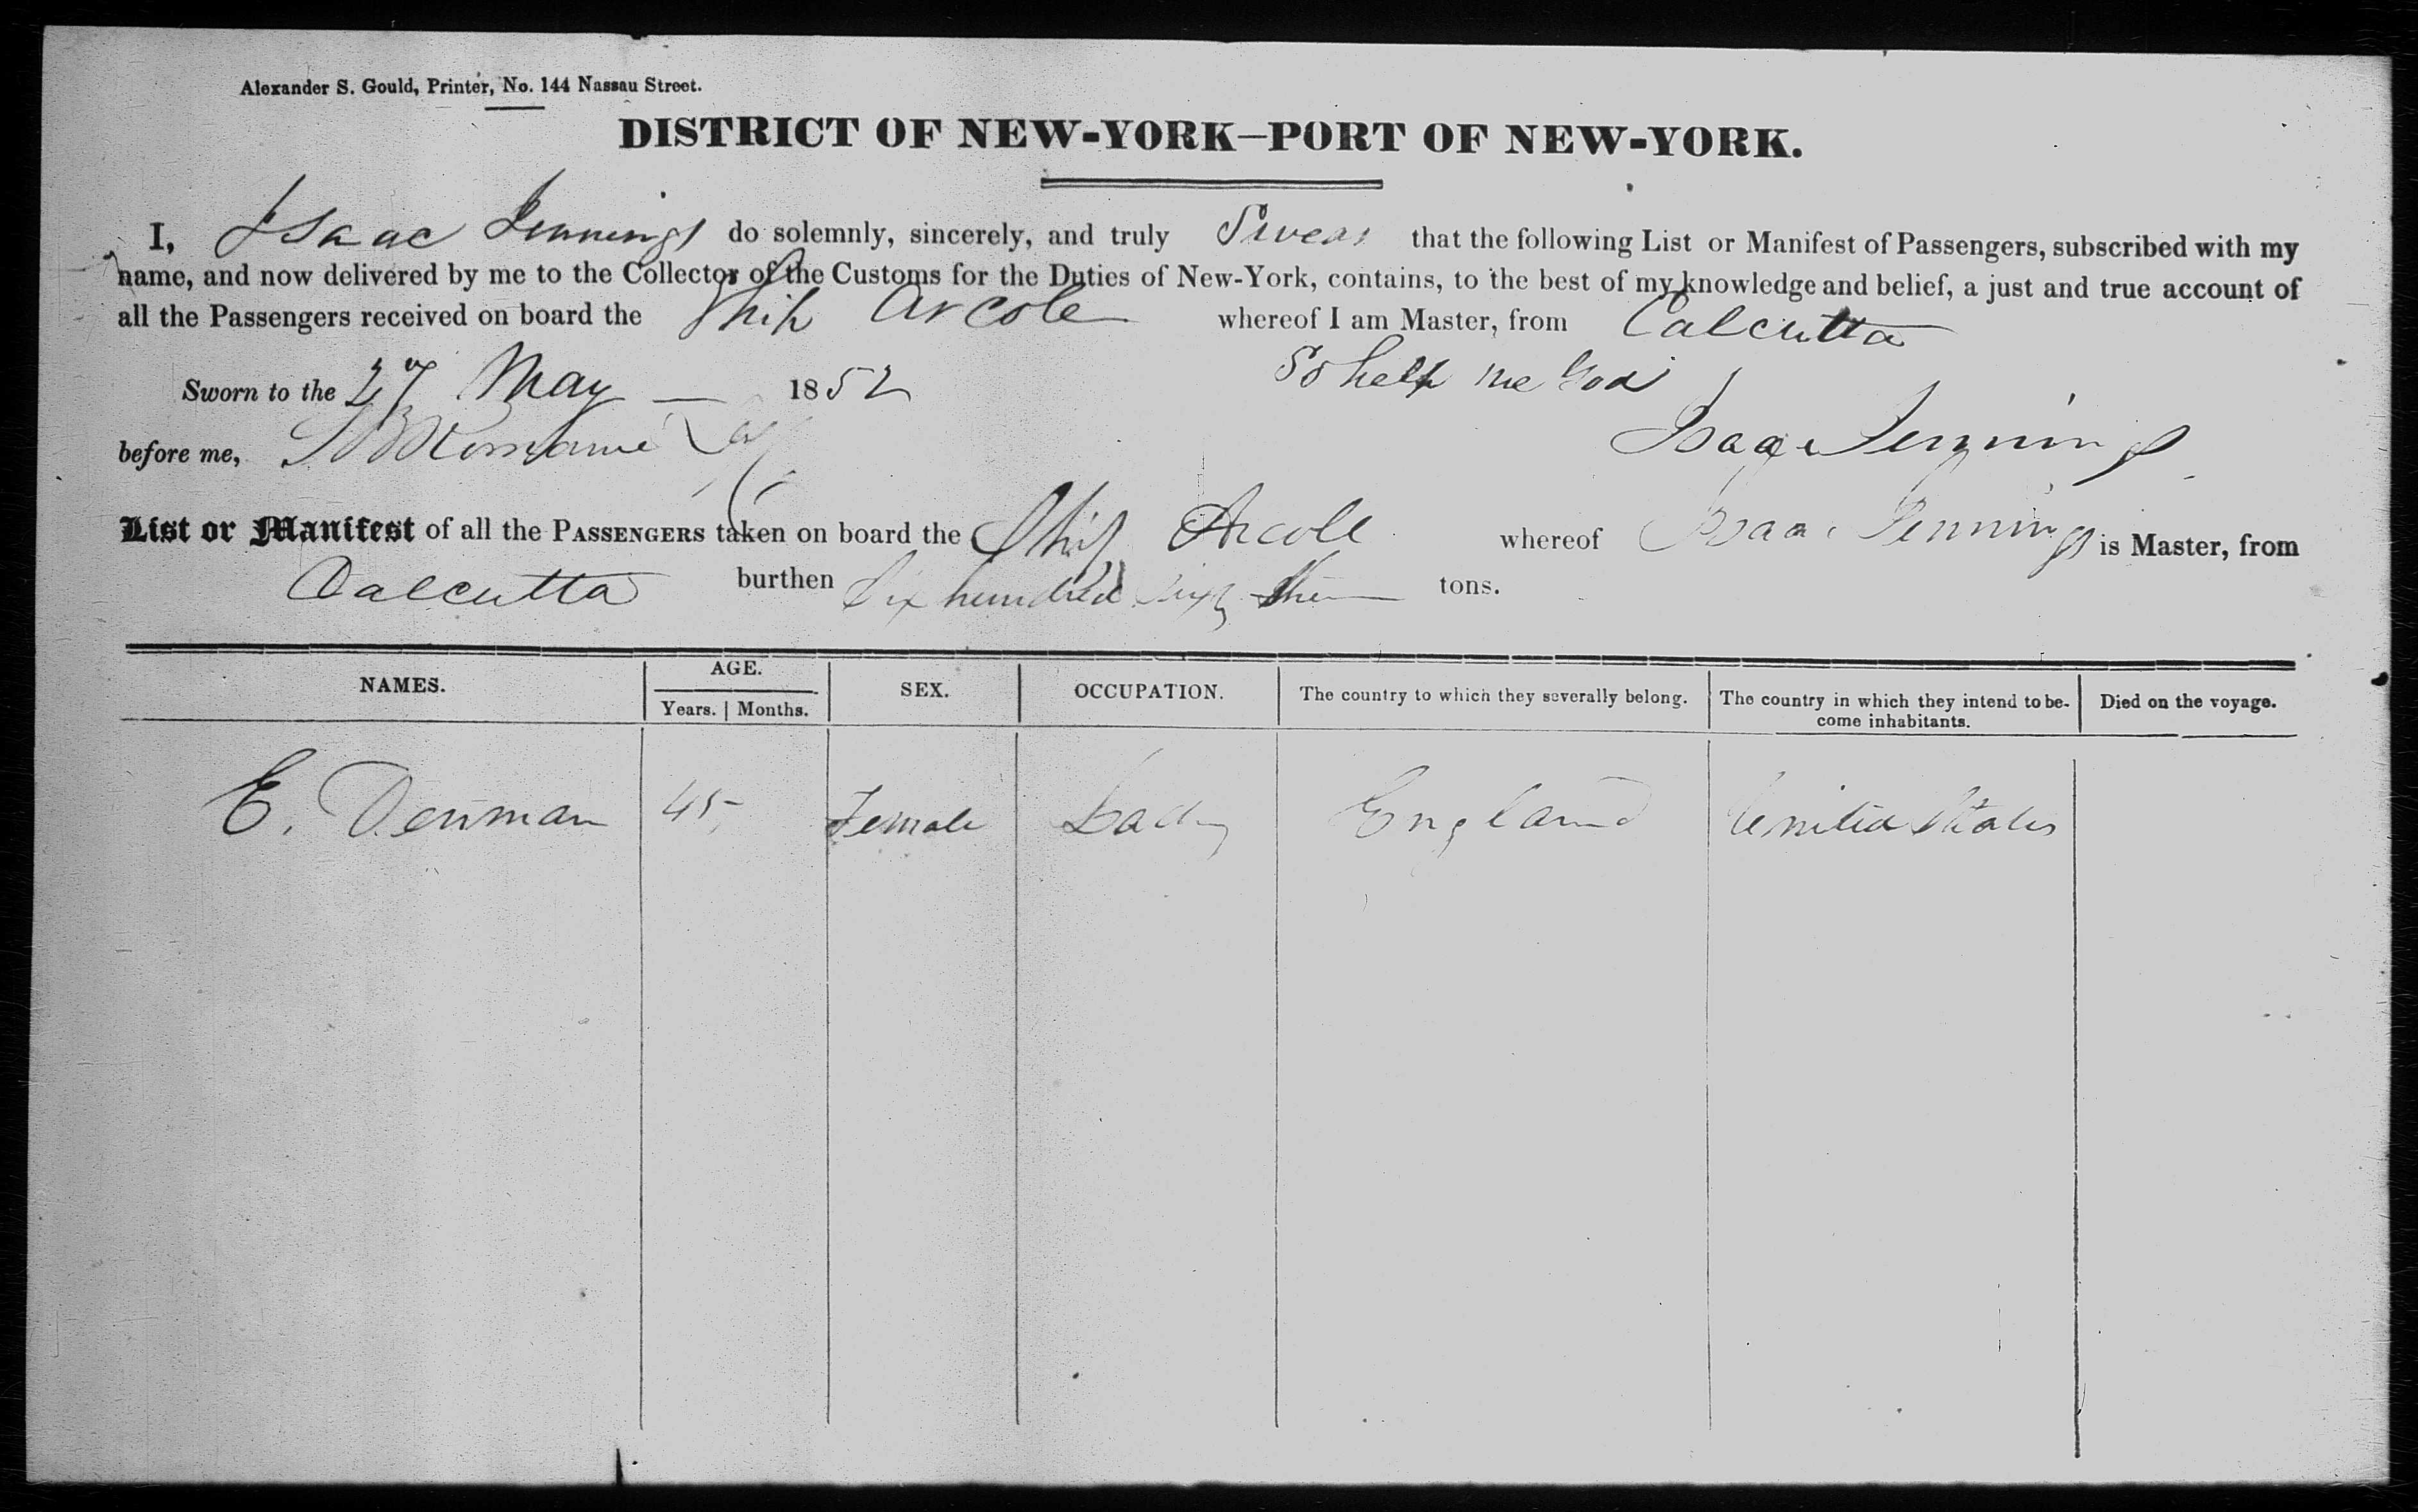 Alexander S. Gould, Printer, No. 144 Nassau Street.
DISTRICT OF NEW-YORK—PORT OF NEW-YORK.
I, Isaac Jennings do solemnly, sincerely, and truly Swear that the following List or Manifest of Passengers, subscribed with my
name, and now delivered by me to the Collector of the Customs for the Duties of New-York, contains, to the best of my knowledge and belief, a just and true account of
all the Passengers received on board the Ship Arcole whereof I am Master, from Calcutta
So help me God
Sworn to the 27 May 1852
before me,
Isaac Jennings
List or Manifest of all the PASSENGERS taken on board the Ship Arcole whereof Isaac Jennings is Master, from
Calcutta burthen Six hundred Sixty three tons.
NAMES. AGE. SEX. OCCUPATION. The country to which they severally belong. The country in which they intend to be- Died on the voyage.
Years. Months. come inhabitants.
E. Denman 45 Female Lady England United States